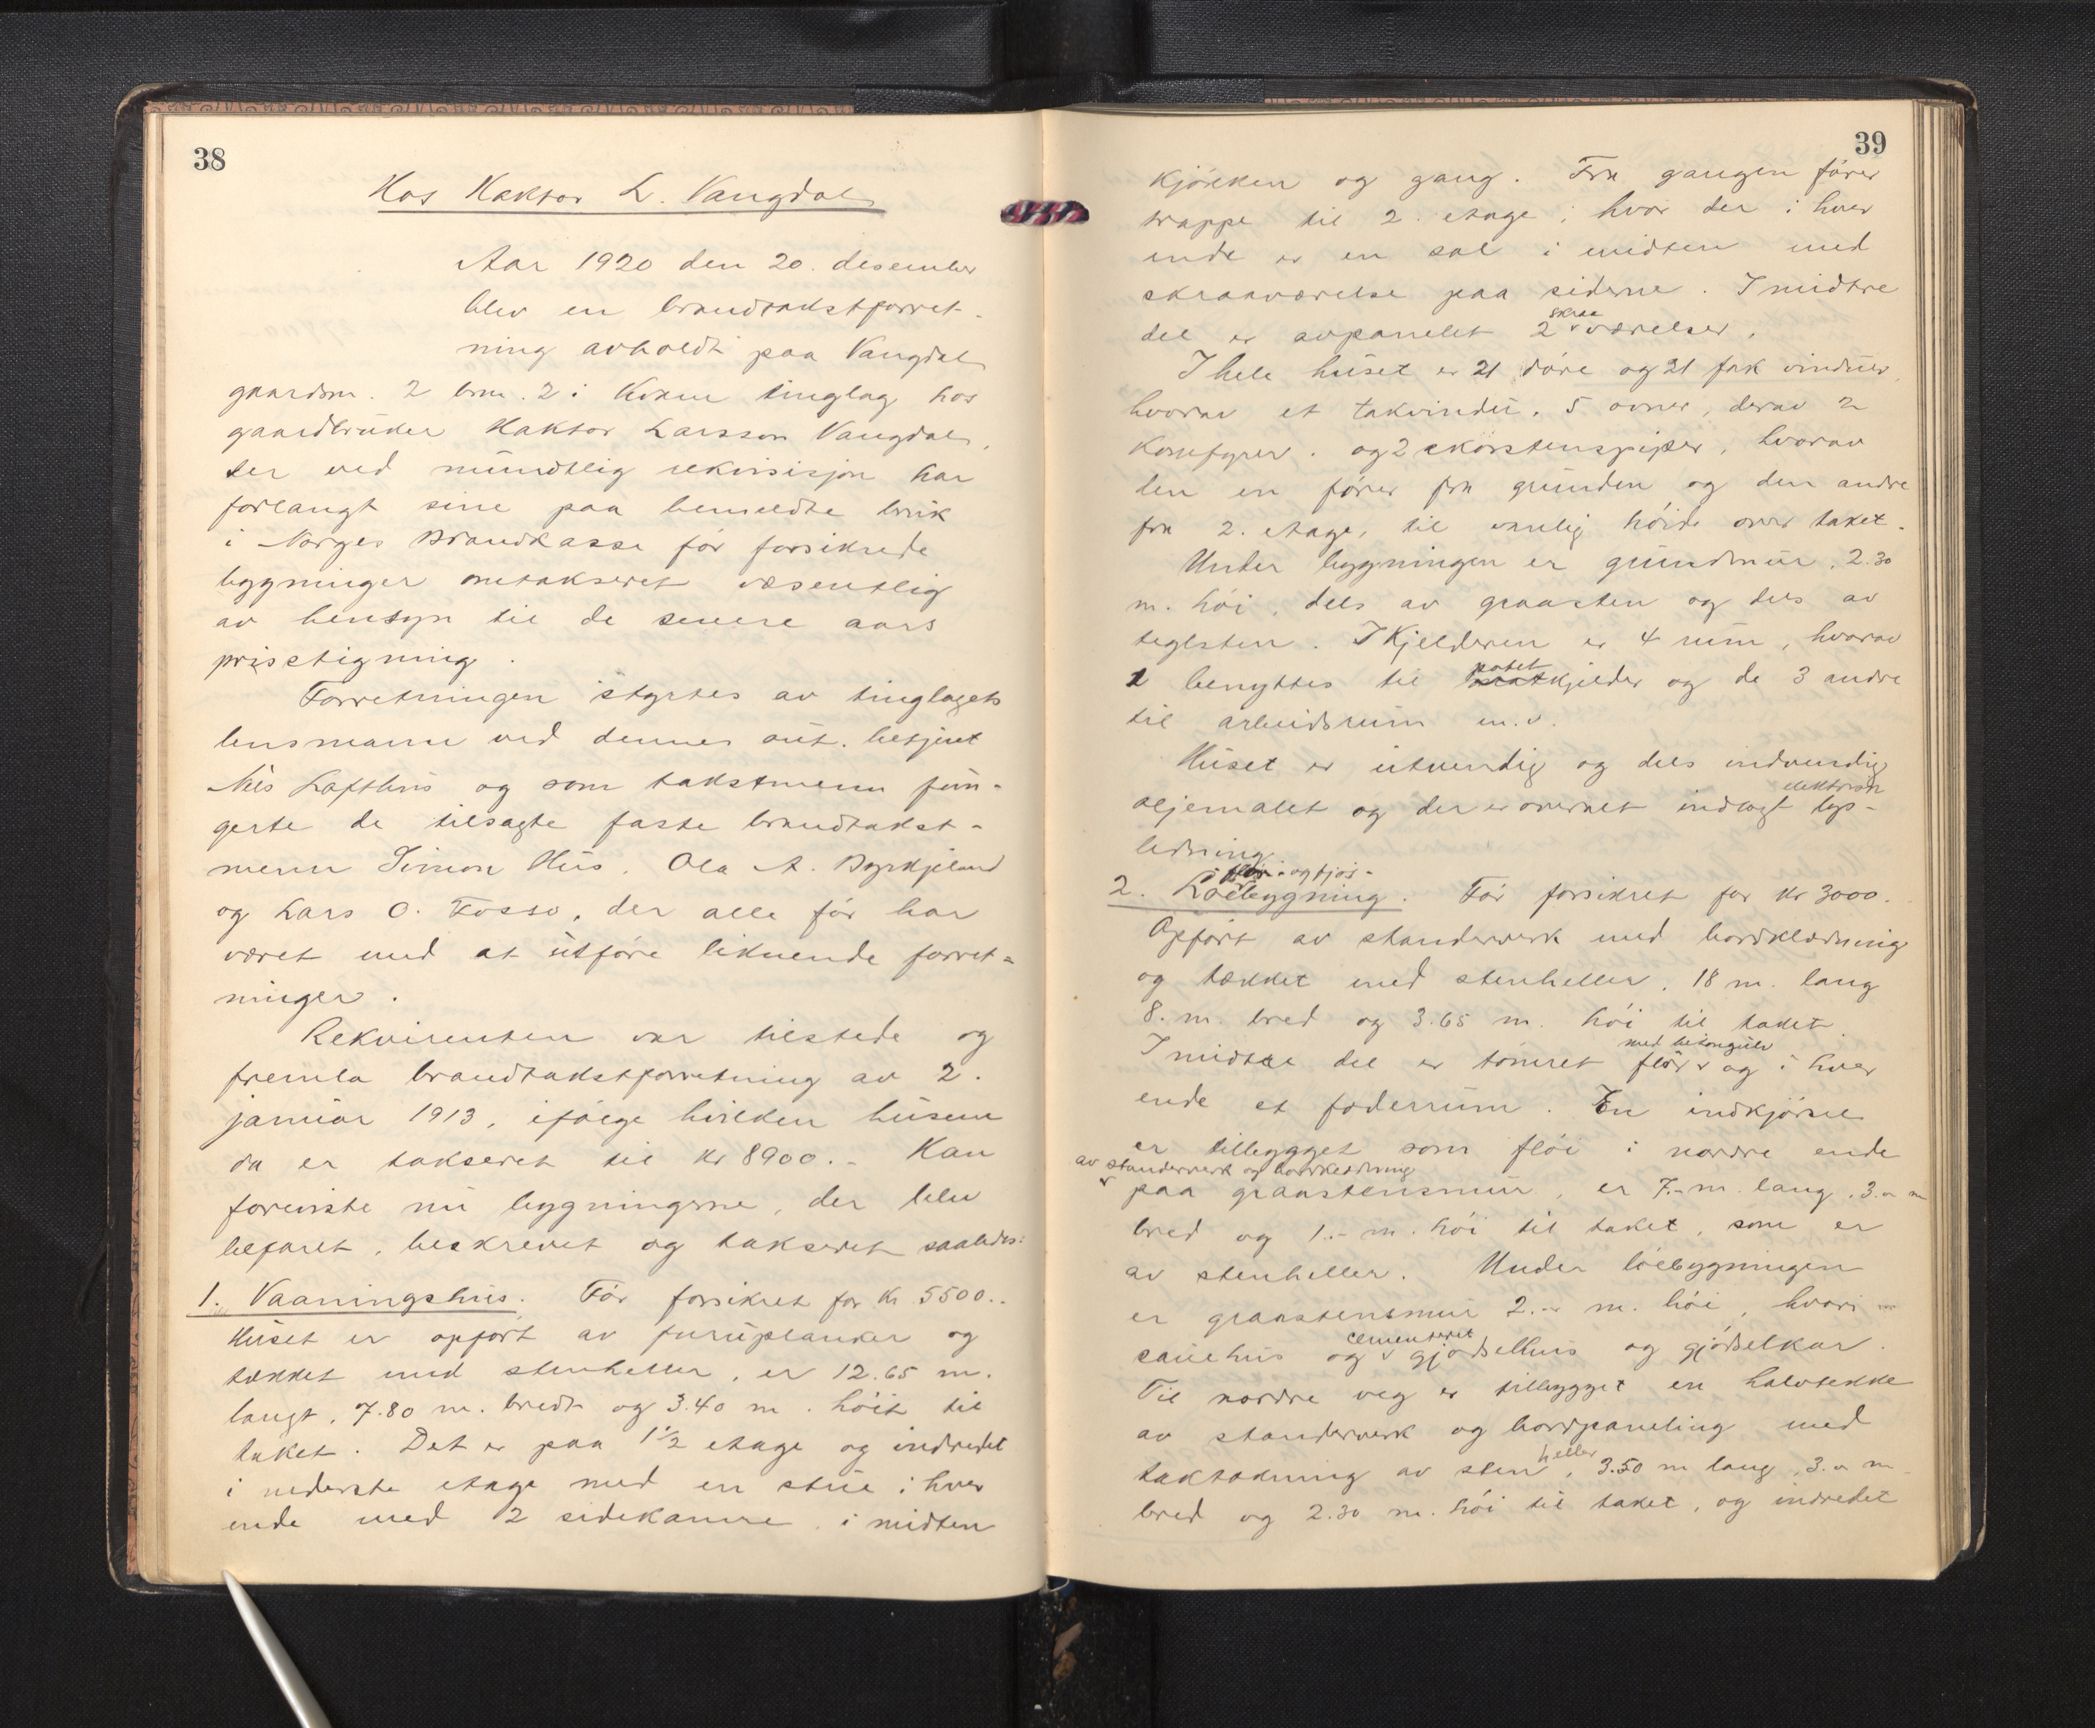 38
Hos Haktor L. Vangdal
Aar 1920 den 20. desember
blev en brandtakstforret-
ning avholdt paa Vangdal
gaardsnr. 2 brnr. 2 i Kvam tinglag hos
gaardbruker Haktor Larsson Vangdal,
der ved mundtlig rekvisisjon har
forlangt sine paa bemeldte bruk
i Norges Brandkasse før forsikrede
bygninger omtakseret væsentlig
av hensyn til de senere aars
prisstigning.
Forretningen styrtes av tinglagets
lensmann ved dennes aut. betjent
Nils Lofthus og som takstmenn fun-
gerte de tilsagte faste brandtakst-
menn Simon Hus, Ola A. Byrkjeland
og Lars O. Fosso, der alle før har
været med at utføre liknende forret-
ninger.
Rekvirenten var tilstede og
fremla brandtakstforretning av 2.
januar 1913, ifølge hvilken husene
da er takseret til kr 8900.- Han
foreviste nu bygningerne, der blev
befaret, beskrevet og takseret saaledes:
1. Vaaningshus. Før forsikret for kr 5500..
Huset er opført av furuplanker og
tækket med stenheller, er 12.65 m.
langt, 7.80 m. bredt og 3.40 m. høit til
taket. Det er paa 1 1/2 etage og indredet
i nederste etage med en stue i hver
ende med 2 sidekamre, i midten
39
kjøkken og gang. Fra gangen fører
trappe til 2. etage, hvor der i hver
ende er en sal i midten med
skraaværelse paa siderne. I midtre
del er avpanelet 2 skraa værelser.
I hele huset er 21 døre og 21 fak vinduer,
hvorav et takvindu. 5 ovner, derav 2
komfyrer. og 2 skorstenspiper, hvorav
den en fører fra grunden og den andre
fra 2. etage, til vanlig høide over taket.
Under bygningen er grundmur, 2.30
m. høi, dels av graasten og dels av
teglsten. I kjelderen er 4 rum, hvorav
1 benyttes til potet kjelder og de 3 andre
til arbeidsrum m.v.
Huset er utvendig og dels indvendig
oljemalet og der er overalt indlagt elektrisk lys-
ledning
2. Løe- flor- og fjos- bygning. Før forsikret for kr 3000.
Opført av standerverk med bordklædning
og tækket med stenheller, 18 m. lang
8. m. bred og 3.65 m. høi til taket.
I midtre del er tømret flor med betongulv og i hver
ende et foderrum. En indkjørsel
er tilbygget som fløi i nordre ende
av standerverk og bordklædning
paa graastensmur, er 7.- m. lang, 3.- m
bred og 1.- m. høi til taket, som er
av stenheller. Under løebygningen
er graastensmur 2.- m. høi, hvori
sauehus og cementeret gjødselhus og gjødselkar.
Til nordre veg er tilbygget en halvtekke
av standerverk og bordpaneling med
taktækning av sten heller, 3.50 m lang, 3.- m
bred og 2.30 m. høi til taket, og indredet